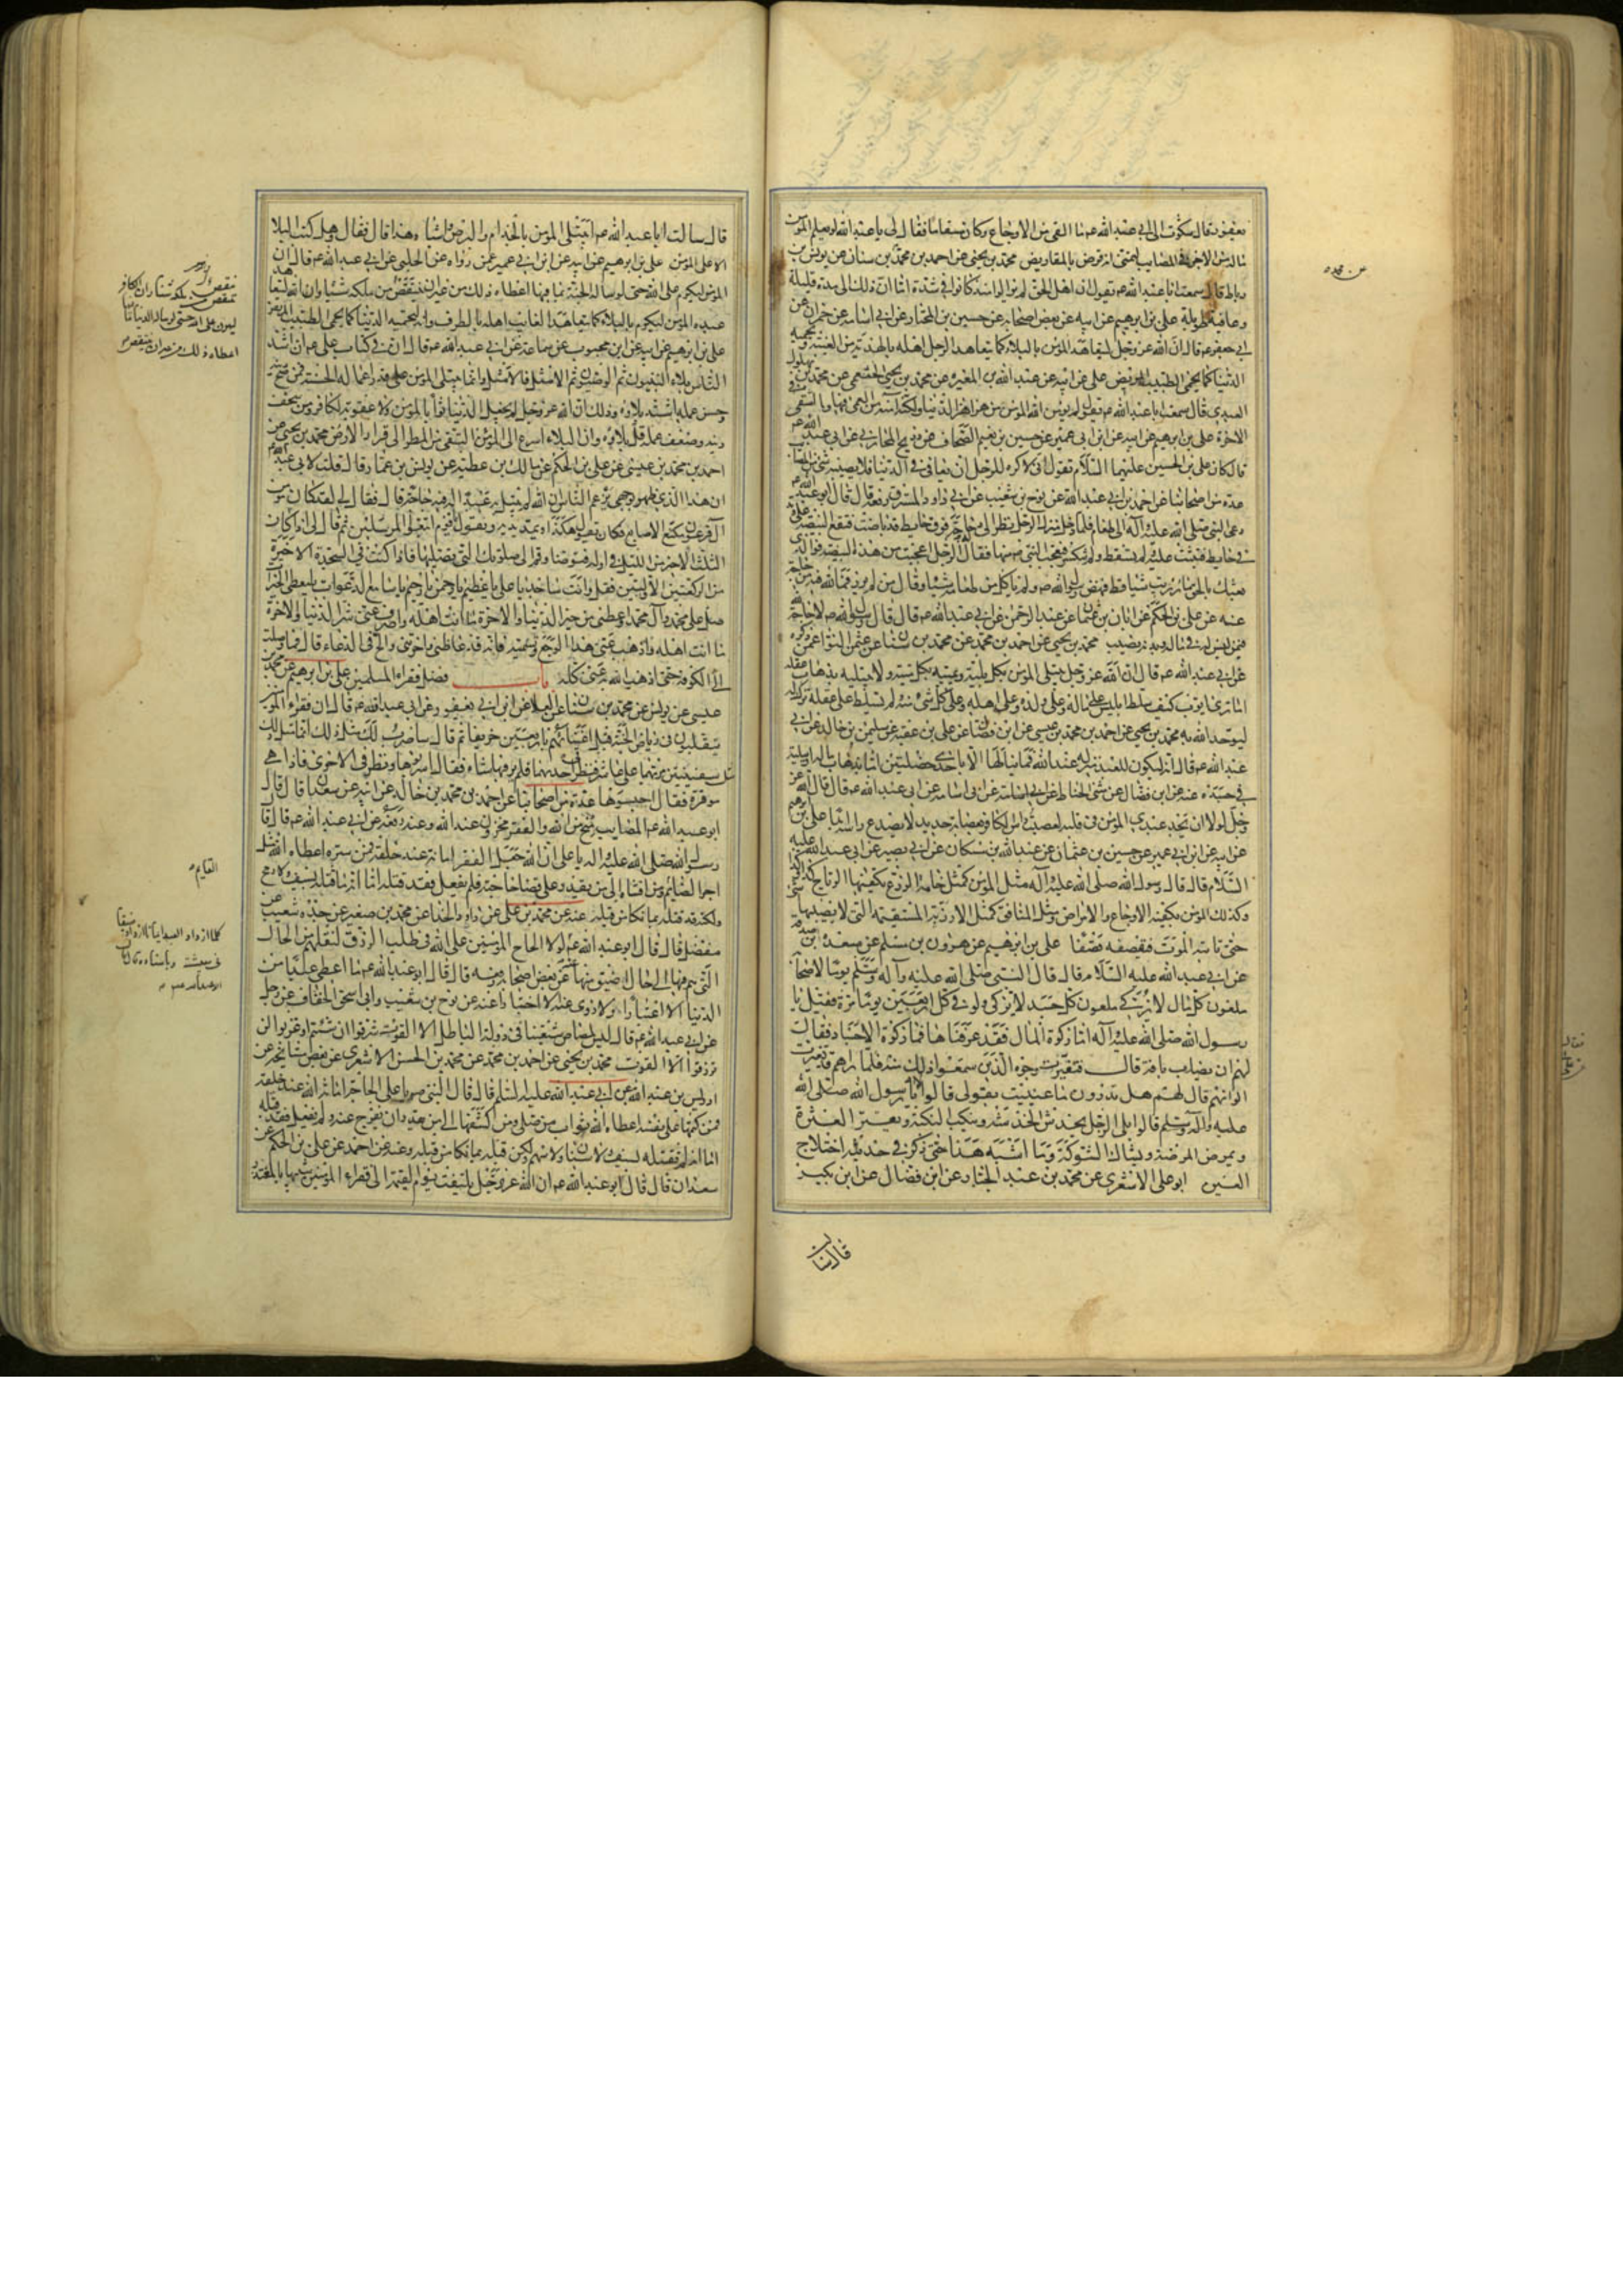 يعفور قال شكوت الى ابي عبد الله عم ما القى من الاوجاع وكان مسقاما فقال لي يا عبد الله لو يعلم المؤمن
ما له من الاجر في المصايب لتمنى انه قرض بالمقاريض محمد بن يحيى عن احمد بن محمد عن محمد بن سنان عن يونس بن
رباط قال سمعت ابا عبد الله عم يقول ان اهل الحق لم يزالوا منذ كانوا في شدة اما ان ذلك الى مدة قليلة
وعافية طويلة علي بن ابرهيم عن ابيه عن بعض اصحابه عن حسين بن المختار عن ابي اسامة عن حمران عن
ابي جعفر عم قال ان الله عز وجل ليتعاهد المؤمن بالبلاء كما يتعاهد الرجل اهله بالهدية من الغيبة ويحميه
الدنيا كما يحمي الطبيب المريض علي عن ابيه عن عبد الله بن المغيرة عن محمد بن يحيى الخثعمي عن محمد بن بهلول
العبدي قال سمعت ابا عبد الله عم يقول لم يؤمن الله المؤمن من هزاهز الدنيا ولكنه آمنه من العمى فيها والشقى في
الاخرة علي بن ابرهيم عن ابيه عن ابن ابي عمير عن حسين بن نعيم الصحاف عن ذريح المحاربي عن ابي عبد الله عم
قال كان علي بن الحسين عليهما السلام يقول اني لاكره للرجل ان يعافى في الدنيا فلا يصيبه شئ من المصايب
عدة من اصحابنا عن احمد بن ابي عبد الله عن نوح بن شعيب عن ابي داود المسترق رفعه قال قال ابو عبد الله عم
دعي النبي صلى الله عليه وآله الى طعام فلما دخل منزل الرجل نظر الى دجاجة فوق حايط قد باضت فتقع البيضة على وتد
في حايط فثبتت عليه لم تسقط ولم تنكسر فتعجب النبي ص منها فقال له الرجل اعجبت من هذه البيضة فوالذي
بعثك بالحق ما رزيت شيئا قط فنهض رسول الله ص ولم ياكل من طعامه شيئا وقال من لم يرزء فما لله فيه من حاجة
عنه عن علي بن الحكم عن ابان بن عثمان عن عبد الرحمن عن ابي عبد الله عم قال قال رسول الله ص لا حاجة لله
فيمن ليس له في ماله وبدنه نصيب محمد بن يحيى عن احمد بن محمد عن محمد بن سنان عن عثمن النوا عمن ذكره
عن ابي عبد الله عم قال ان الله عز وجل يبتلي المؤمن بكل بلية ويميته بكل ميتة ولا يبتليه بذهاب عقله
اما ترى ايوب كيف سلط ابليس على ماله وعلى ولده وعلى اهله وعلى كل شئ منه ولم يسلط على عقله ترك له
ليوحد الله به محمد بن يحيى عن احمد بن محمد بن عيسى عن ابن فضال عن علي بن عقبة عن سليمن بن خالد عن ابي
عبد الله عم قال انه ليكون للعبد منزلة عند الله فما ينالها الا باحدى خصلتين اما بذهاب ماله او ببلية
في جسده عنه عن ابن فضال عن مثنى الحناط عن ابي اسامة عن ابي عبد الله عم قال قال الله عز
وجل لولا ان يجد عبدي المؤمن في قلبه لعصبت راس الكافر بعصابة حديد لا يصدع راسه ابدا علي بن ابرهيم
عن ابيه عن ابن ابي عمير عن حسين بن عثمان عن عبد الله بن مسكان عن ابي بصير عن ابي عبد الله عليه
السلام قال قال رسول الله صلى الله عليه وآله مثل المؤمن كمثل خامة الزرع تكفيها الرياح كذا وكذا
وكذلك المؤمن تكفيه الاوجاع والامراض ومثل المنافق كمثل الارزبة المستقيمة التي لا يصيبها شئ
حتى ياتيه الموت فيقصفه قصفا علي بن ابرهيم عن هرون بن مسلم عن مسعدة بن صدقة
عن ابي عبد الله عليه السلام قال قال النبي صلى الله عليه وآله وسلم يوما لاصحابه
ملعون كل مال لا يزكى ملعون كل جسد لا يزكى ولو في كل اربعين يوما مرة فقيل يا
رسول الله صلى الله عليه وآله اما زكوة المال فقد عرفناها فما زكوة الاجساد فقال
لهم ان يصاب بافة قال فتغيرت وجوه الذين سمعوا ذلك منه فلما راهم قد تغيرت
الوانهم قال لهم هل تدرون ما عنيت بقولي قالوا لا يا رسول الله صلى الله
عليه وآله وسلم قالوا بلى الرجل يخدش الخدشة وينكب النكبة ويعثر العثرة
ويمرض المرضة ويشاك الشوكة وما اشبه هذا حتى ذكر في حديثه اختلاج
العين ابو علي الاشعري عن محمد بن عبد الجبار عن ابن فضال عن ابن بكير
قال سالت
عن محمد
قال سالت ابا عبد الله عم ايبتلى المؤمن بالجذام والبرص واشباه هذا قال فقال وهل كتب البلا
الا على المؤمن علي بن ابرهيم عن ابيه عن ابن ابي عمير عمن رواه عن الحلبي عن ابي عبد الله عم قال ان
المؤمن ليكرم على الله حتى لو ساله الجنة بما فيها اعطاه ذلك من غير ان ينتقص من ملكه شيئا وان الله ليتعاهد
عبده المؤمن بالبلاء كما يتعاهد الغايب اهله بالطرف وانه ليحميه الدنيا كما يحمي الطبيب المريض
علي بن ابرهيم عن ابيه عن ابن محبوب عن سماعة عن ابي عبد الله عم قال ان في كتاب علي عم ان اشد
الناس بلاء النبيون ثم الوصيون ثم الامثل فالامثل وانما يبتلى المؤمن على قدر اعماله الحسنة فمن صح دينه
وحسن عمله اشتد بلاؤه وذلك ان الله عز وجل لم يجعل الدنيا ثوابا لمؤمن ولا عقوبة لكافر ومن سخف
دينه وضعف عمله قل بلاؤه وان البلاء اسرع الى المؤمن التقي من المطر الى قرار الارض محمد بن يحيى عن
احمد بن محمد بن عيسى عن علي بن الحكم عن مالك بن عطية عن يونس بن عمار قال قلت لابي عبد الله عم
ان هذا الذي ظهر بوجهي يزعم الناس ان الله لم يبتل به عبدا له فيه حاجة قال فقال لي لقد كان مؤمن
آل فرعون مكنع الاصابع فكان يقول هكذا ويمد يديه ويقول يا قوم اتبعوا المرسلين ثم قال لي اذا كان
الثلث الاخير من الليل في اوله فتوضا وقم الى صلوتك التي تصليها فاذا كنت في السجدة الاخيرة
من الركعتين الاوليين فقل وانت ساجد يا علي يا عظيم يا رحمن يا رحيم يا سامع الدعوات يا معطي الخيرات
صل على محمد وآل محمد واعطني من خير الدنيا والاخرة ما انت اهله واصرف عني من شر الدنيا والاخرة
ما انت اهله واذهب عني هذا الوجع وتسميه فانه قد غاظني واحزنني والح في الدعاء قال فما وصلت
الى الكوفة حتى اذهب الله به عني كله باب فضل فقراء المسلمين علي بن ابرهيم عن محمد بن
عيسى عن يونس عن محمد بن سنان عن العلاء عن ابن ابي يعفور عن ابي عبد الله عم قال ان فقراء المؤمنين
يتقلبون في رياض الجنة قبل اغنيائهم باربعين خريفا ثم قال ساضرب لك مثل ذلك انما مثل ذلك
مثل سفينتين مر بهما على عاشر فنظر في احديهما فلم ير فيها شيئا فقال اسربوها ونظر في الاخرى فاذا هي
موقرة فقال احبسوها عدة من اصحابنا عن احمد بن محمد بن خالد عن ابيه عن سعدان قال قال
ابو عبد الله عم المصايب منح من الله والفقر مخزون عند الله وعنه رفعه عن ابي عبد الله عم قال قال
رسول الله صلى الله عليه واله يا علي ان الله جعل الفقر امانة عند خلقه فمن ستره اعطاه الله مثل
اجر الصائم ومن افشاه الى من يقدر على قضاء حاجته فلم يفعل فقد قتله اما انه ما قتله بسيف ولا رمح
ولكنه قتله بما نكا من قلبه عنه عن محمد بن علي عن داود الحذا عن محمد بن صغير عن جده شعيب عن
مفضل قال قال ابو عبد الله عم لولا الحاح المؤمنين على الله في طلب الرزق لنقلهم من الحال
التي هم فيها الى حال اضيق منها عنه عن بعض اصحابه رفعه قال قال ابو عبد الله عم ما اعطي عبد من
الدنيا الا اعتبارا ولا زوي عنه الا اختبارا عنه عن نوح بن شعيب وابي اسحق الخفاف عن رجل
عن ابي عبد الله عم قال ليس لمصاص شيعتنا في دولة الباطل الا القوت شرقوا ان شئتم او غربوا لن
ترزقوا الا القوت محمد بن يحيى عن احمد بن محمد عن محمد بن الحسن الاشعري عن بعض مشايخه عن
ادريس بن عبد الله عن ابي عبد الله عليه السلم قال قال النبي ص يا علي الحاجة امانة الله عند خلقه
فمن كتمها على نفسه اعطاه الله ثواب من صلى ومن كشفها الى من يقدر ان يفرج عنه ولم يفعل فقد قتله
اما انه لم يقتله بسيف ولا سنان ولا سهم ولكن قتله بما نكا من قلبه وعنه عن احمد عن علي بن الحكم عن
سعدان قال قال ابو عبد الله عم ان الله عز وجل يلتفت يوم القيمة الى فقراء المؤمنين شبيها بالمعتذر
القايم
كلما ازداد العبد ايمانا ازداد ضيقا
في معيشته وباسناده قال